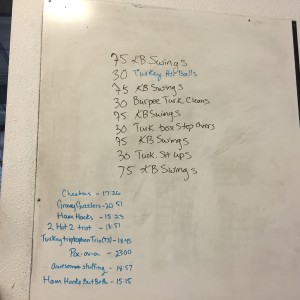 75 KB Swings
30 Turkey Balls
75 KB Swings
30 Burpee Turk. Cleans
75 KB Swings
30 Turk box Step overs
75 KB Swings
30 Turk. Sit ups
75 KB Swings
Cheetas - 17:26
Gravy Guzzlers - 20:51
Ham Hocks - 15:23
2 Hot 2 trot - 13:51
Turkey tryptophan Trio
Pox-av-a - 23:00
awesome stuffing - 14:57
Ham Hocks But Better - 15:15